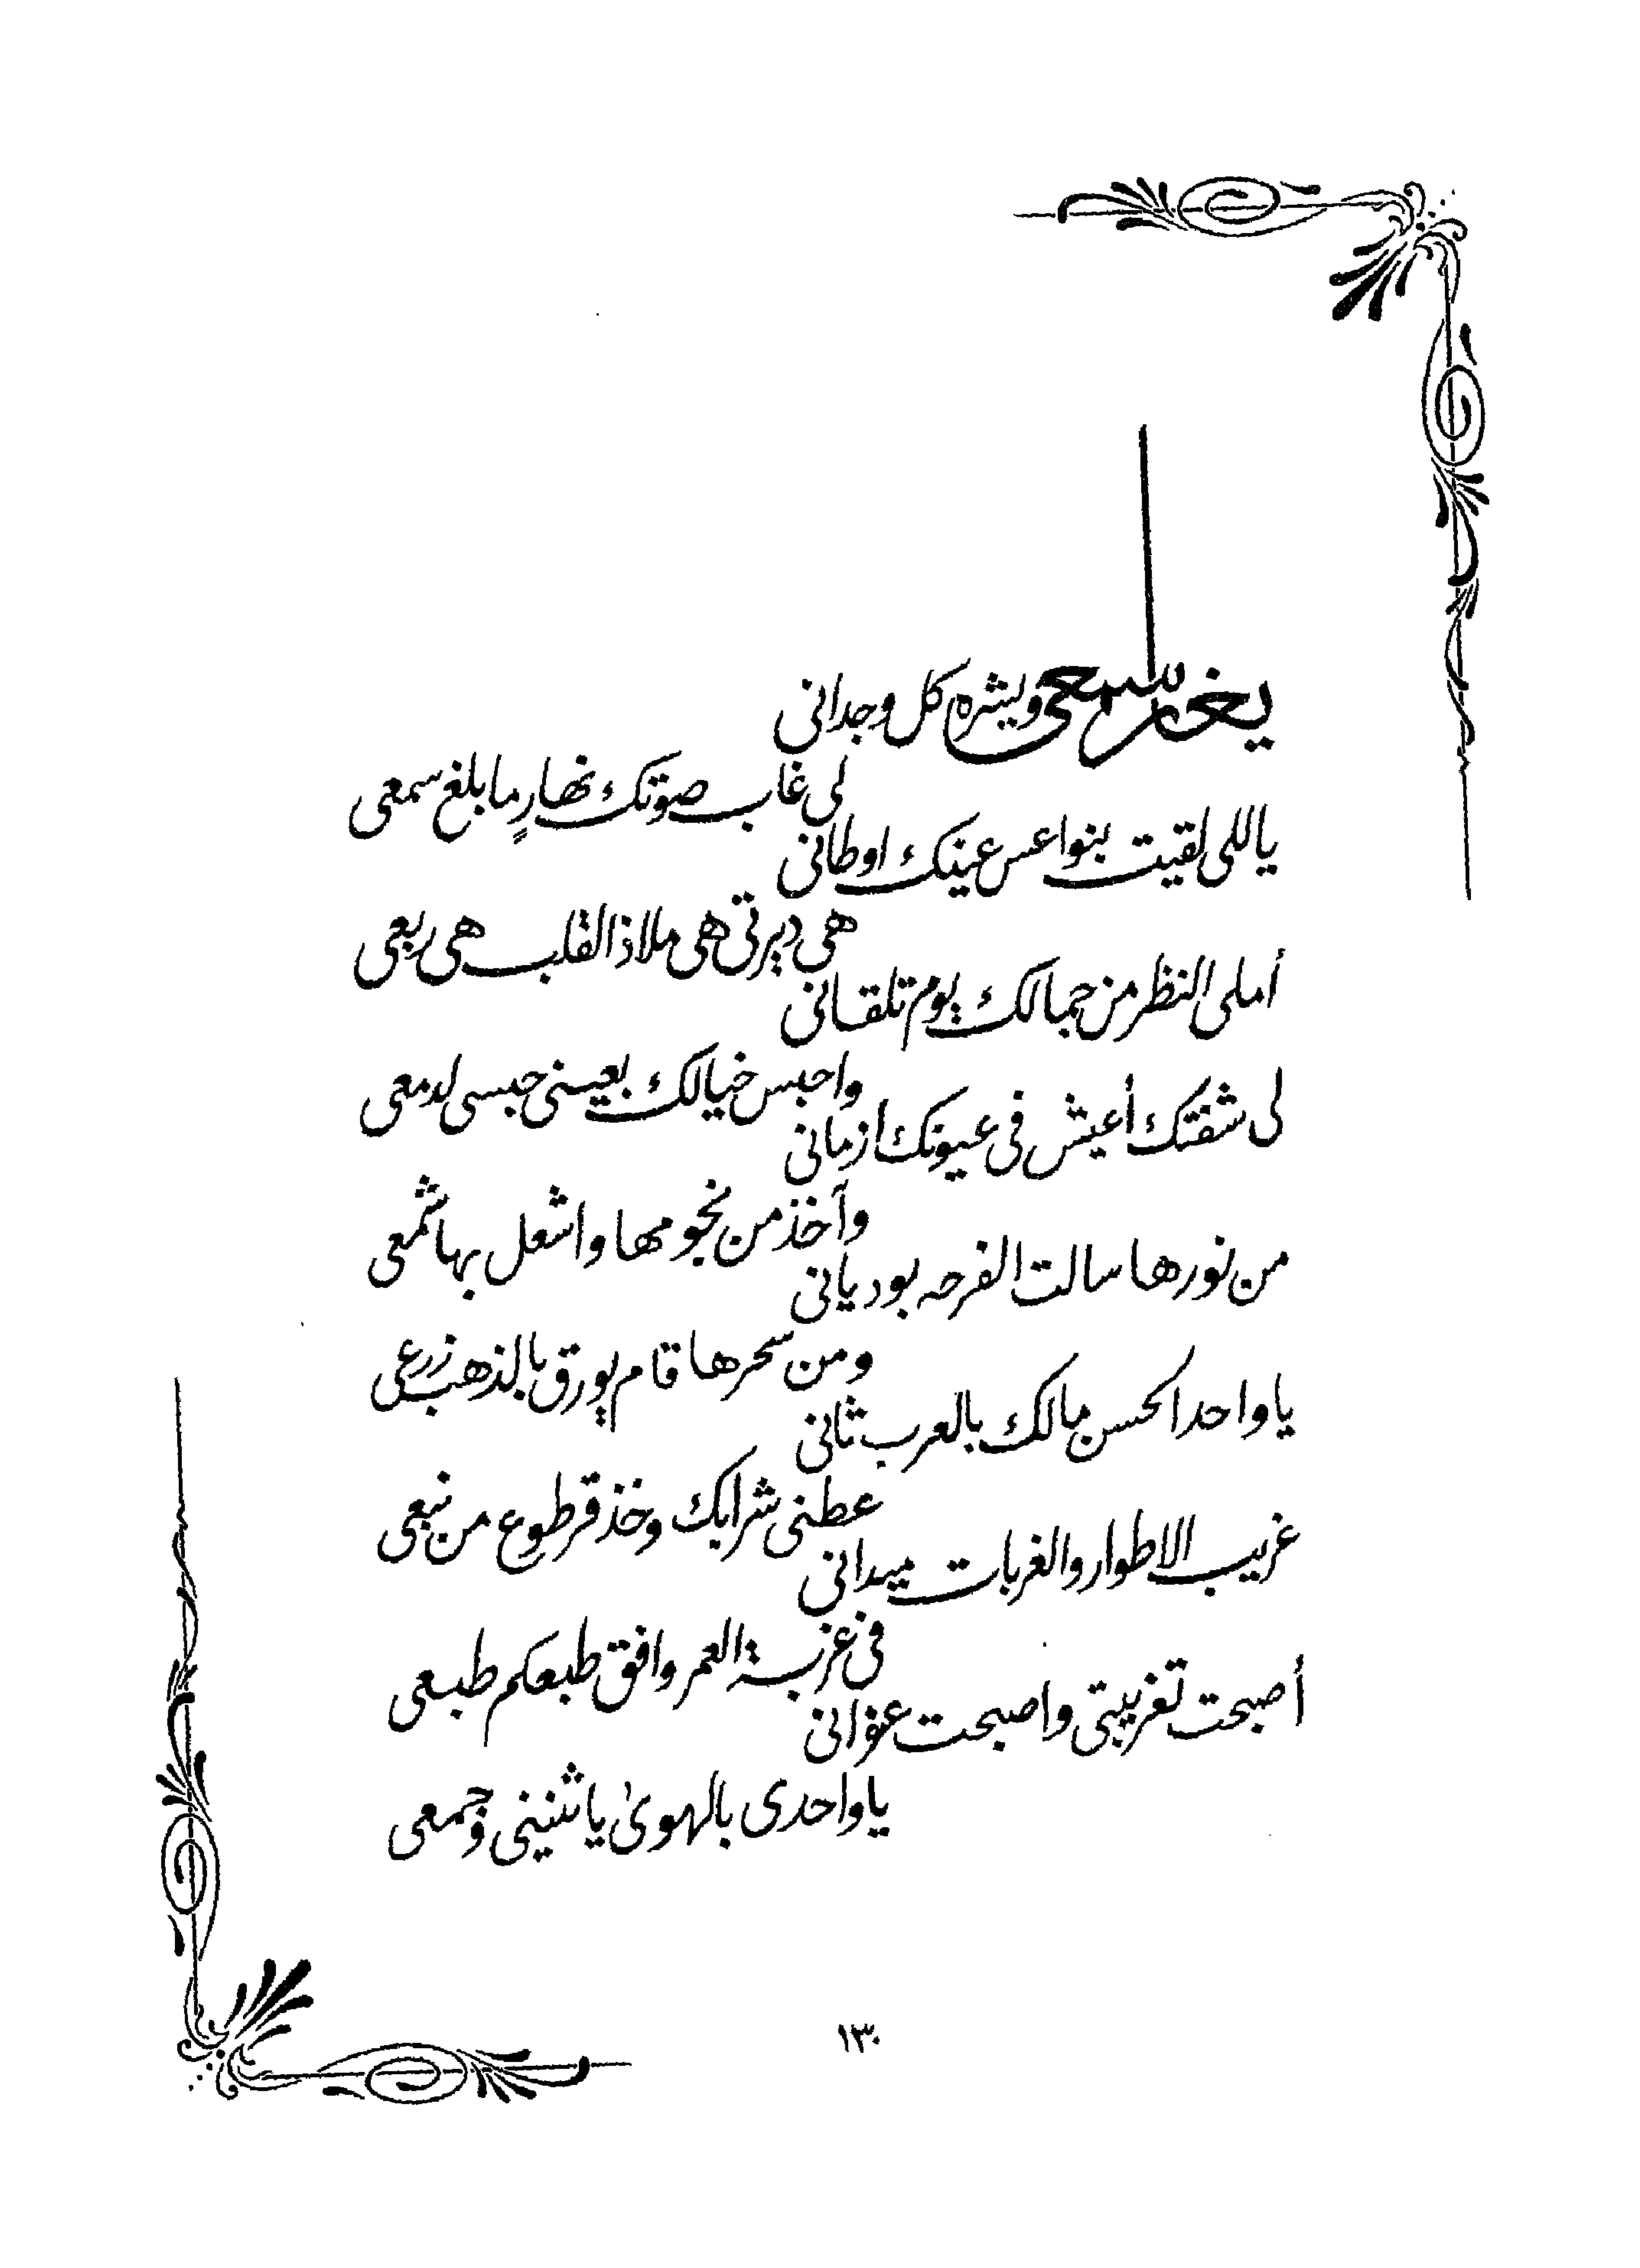 يغار سمعي ويشره كل وجداني
لي غاب صوتك نهارٍ ما بلغ سمعي
ياللي لقيت بنواعس عينك اوطاني
هي ديرتي هي ملاذ القلب هي ربعي
أملي النظر من جمالك يوم تلقاني
واحبس خيالك بعيني حبسي لدمعي
لي شفتك أعيش في عيونك ازماني
وآخذ من نجومها واشعل بها شمعي
من نورها سالت الفرحه بودياني
ومن سحرها قام يورق بالذهب زرعي
يا واحد الحسن مالك بالعرب ثاني
عطني شرابك وخذ قرطوع من نبعي
غريب الاطوار والغربات ميداني
في غربة العمر وافق طبعكم طبعي
أصبحت تغريبتي واصبحت عنواني
يا واحدي بالهوى يا شنيني وجمعي
١٣٠